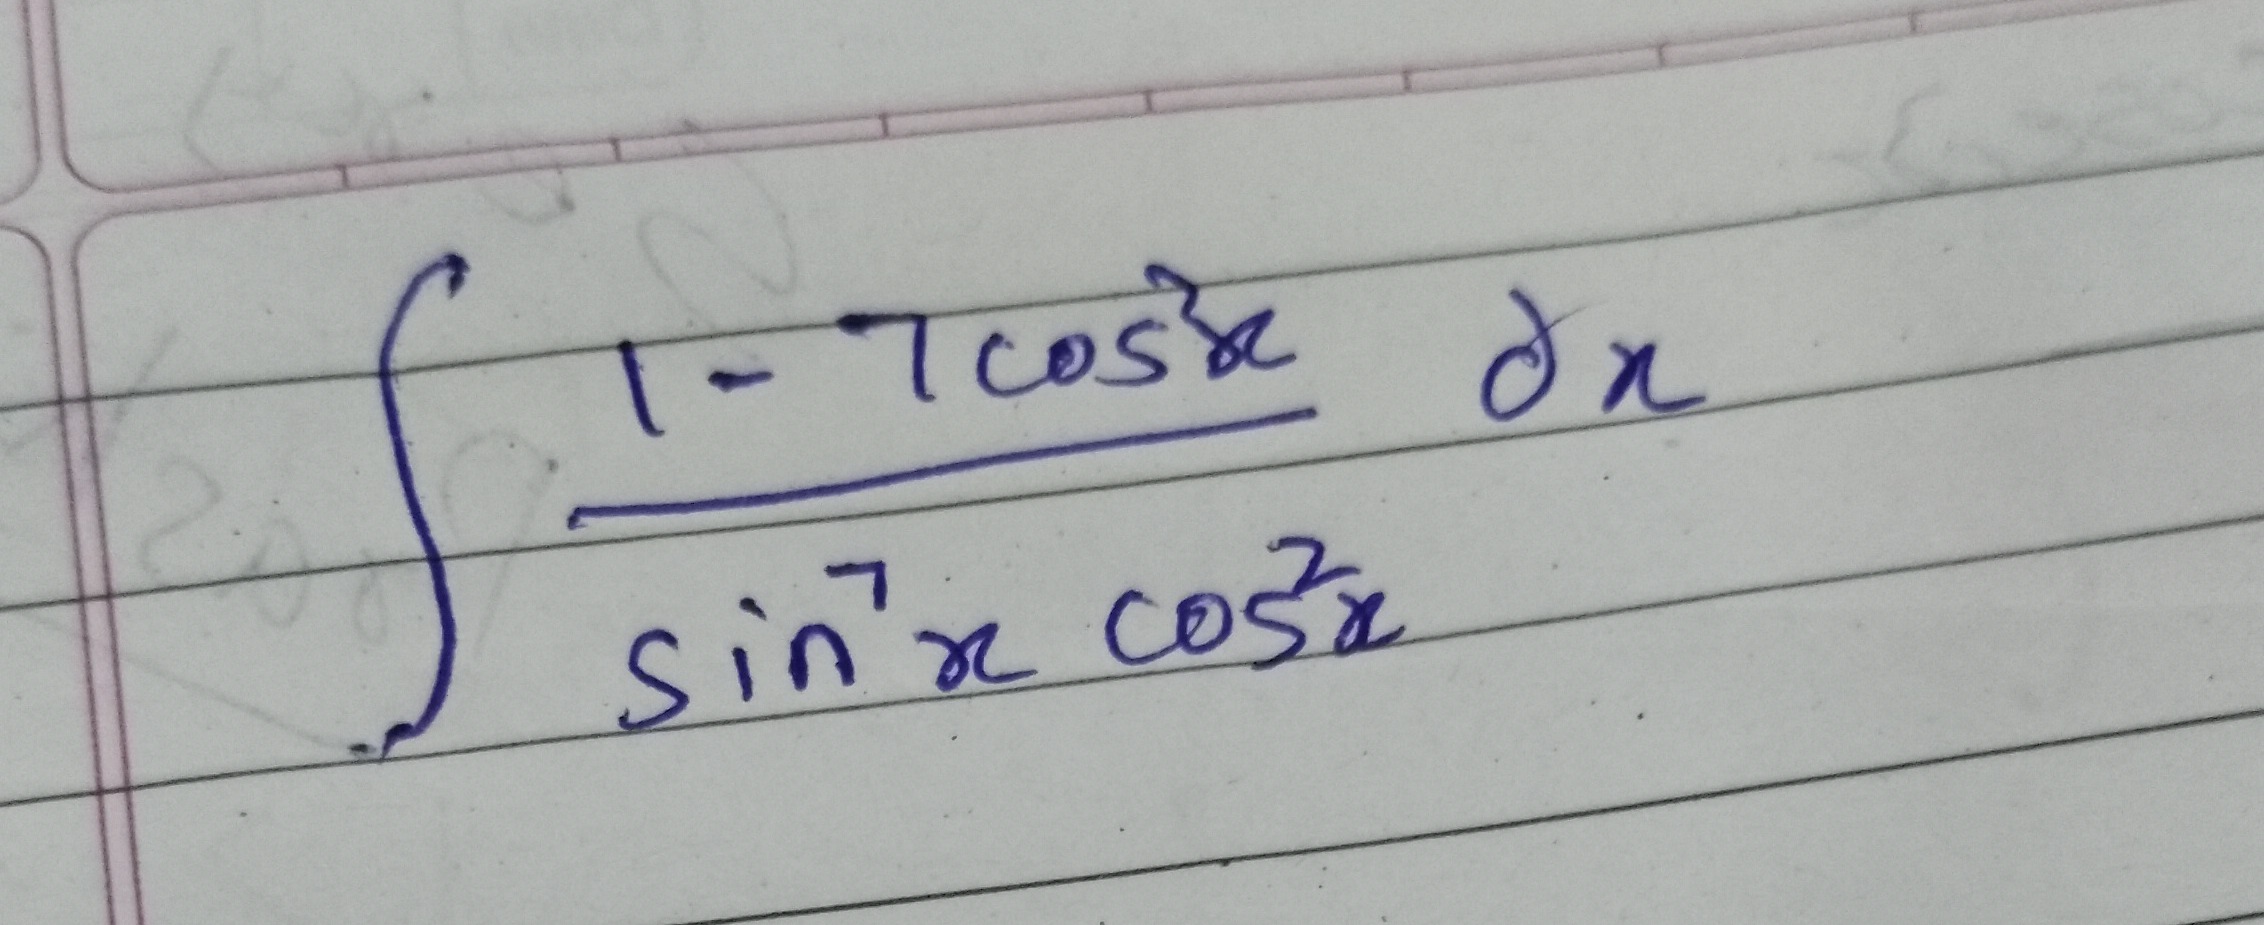 ∫ (1 - 7cos²x) / (sin⁷x cos²x) dx